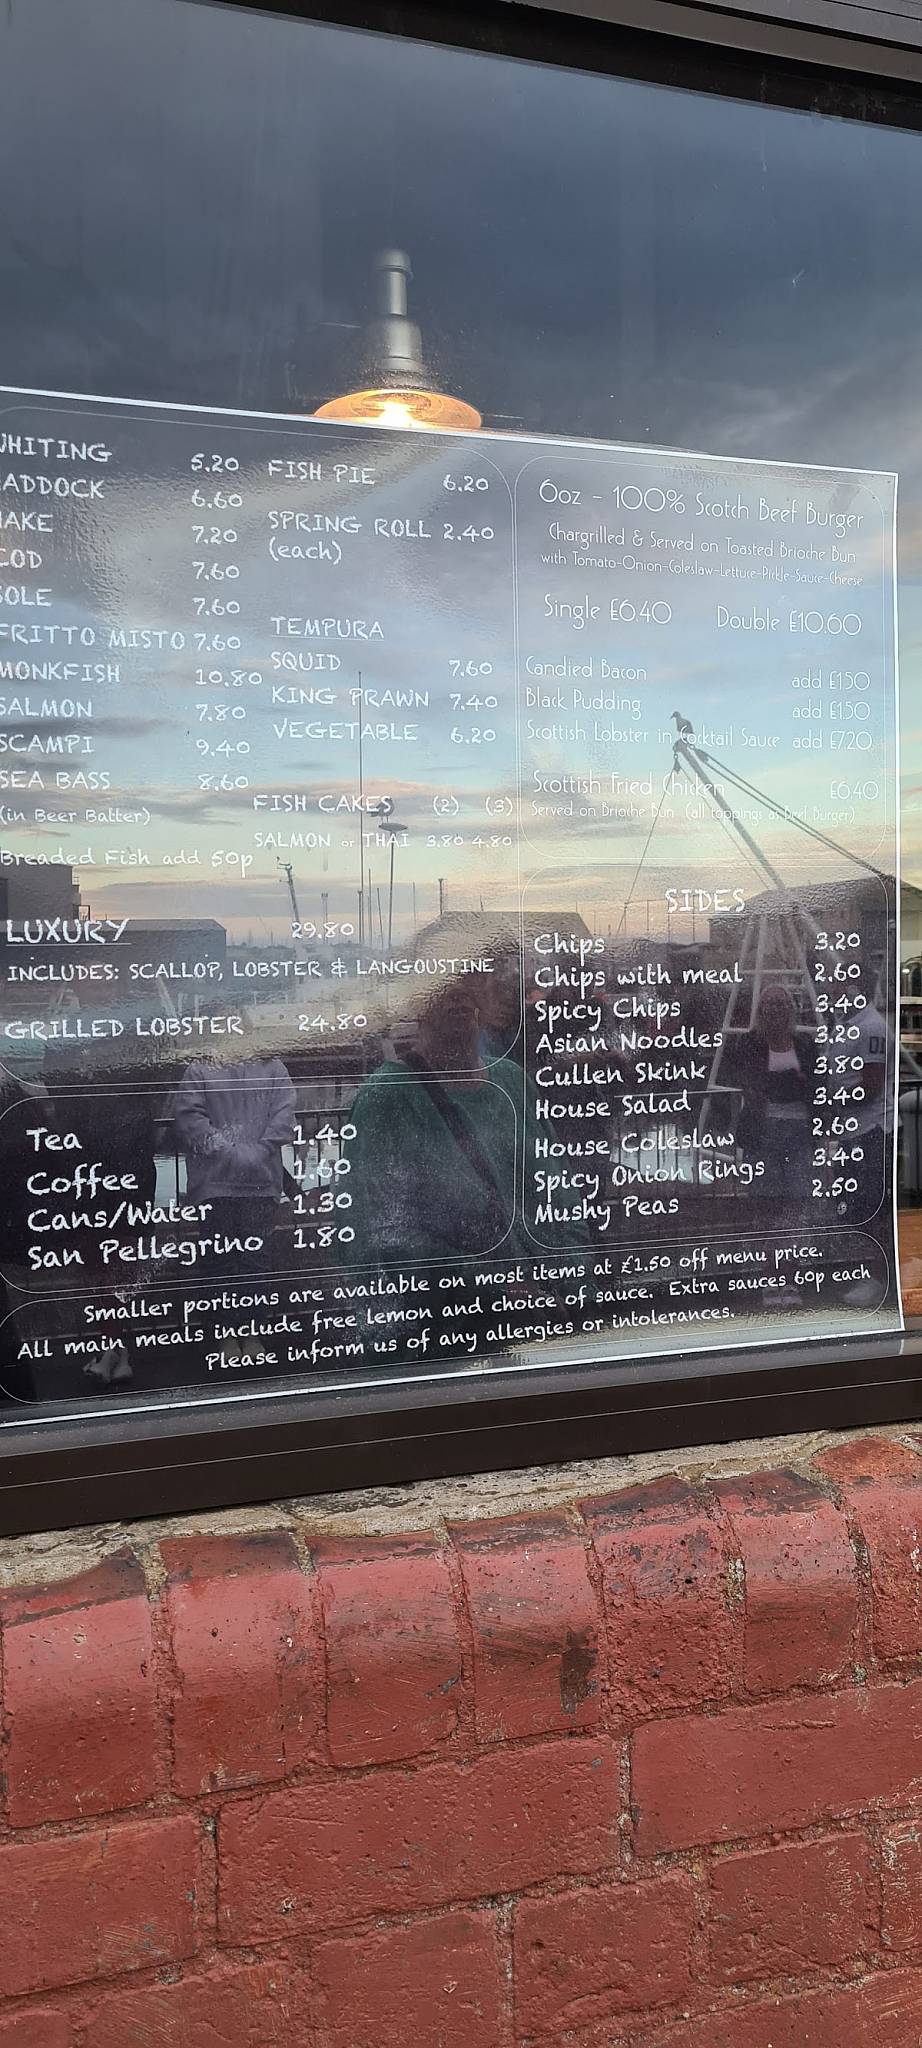 WHITING 5.20
HADDOCK 6.60
HAKE 7.20
COD 7.60
SOLE 7.60
FRITTO MISTO 7.60
MONKFISH 10.80
SALMON 7.80
SCAMPI 9.40
SEA BASS 8.60
(in Beer Batter)
Breaded Fish add 50p
FISH PIE 6.20
SPRING ROLL 2.40
(each)
TEMPURA
SQUID 7.60
KING PRAWN 7.40
VEGETABLE 6.20
FISH CAKES (2) (3)
SALMON or THAI 3.80 4.80
LUXURY 29.80
INCLUDES: SCALLOP, LOBSTER & LANGOUSTINE
GRILLED LOBSTER 24.80
Tea 1.40
Coffee 1.60
Cans/Water 1.30
San Pellegrino 1.80
6oz - 100% Scotch Beef Burger
Chargrilled & Served on Toasted Brioche Bun
with Tomato-Onion-Coleslaw-Lettuce-Pickle-Sauce-Cheese
Single £6.40 Double £10.60
Candied Bacon add £1.50
Black Pudding add £1.50
Scottish Lobster in Cocktail Sauce add £7.20
Scottish Fried Chicken £6.40
Served on Brioche Bun (all toppings as Beef Burger)
SIDES
Chips 3.20
Chips with meal 2.60
Spicy Chips 3.40
Asian Noodles 3.20
Cullen Skink 3.80
House Salad 3.40
House Coleslaw 2.60
Spicy Onion Rings 3.40
Mushy Peas 2.50
Smaller portions are available on most items at £1.50 off menu price.
All main meals include free lemon and choice of sauce. Extra sauces 60p each
Please inform us of any allergies or intolerances.